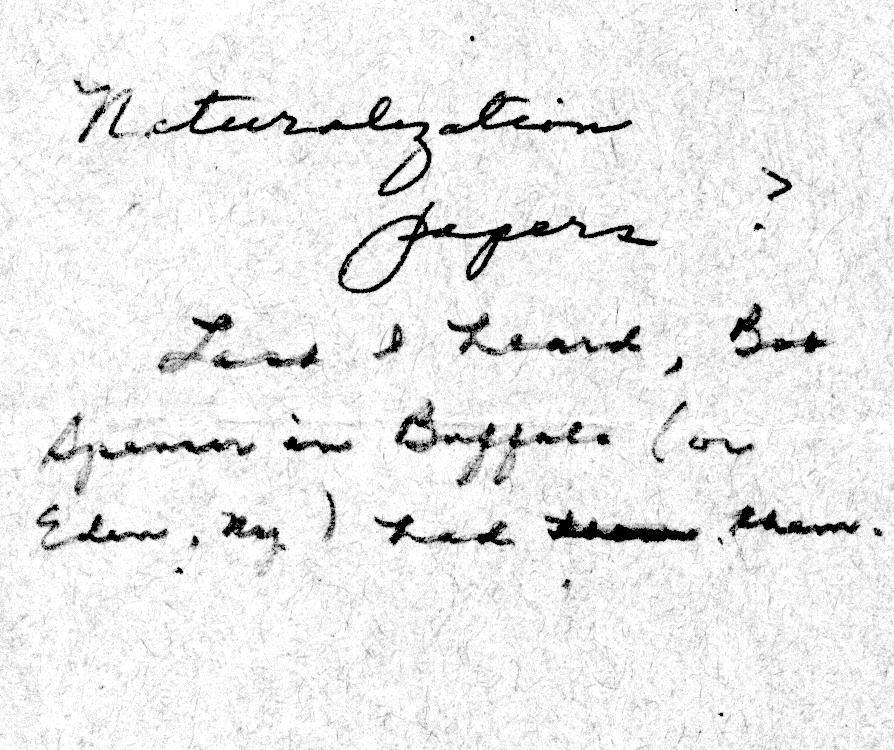 Naturalization
papers ?
Last I heard, Bob
Spenser in Buffalo (or
Eden, Ny) had them.